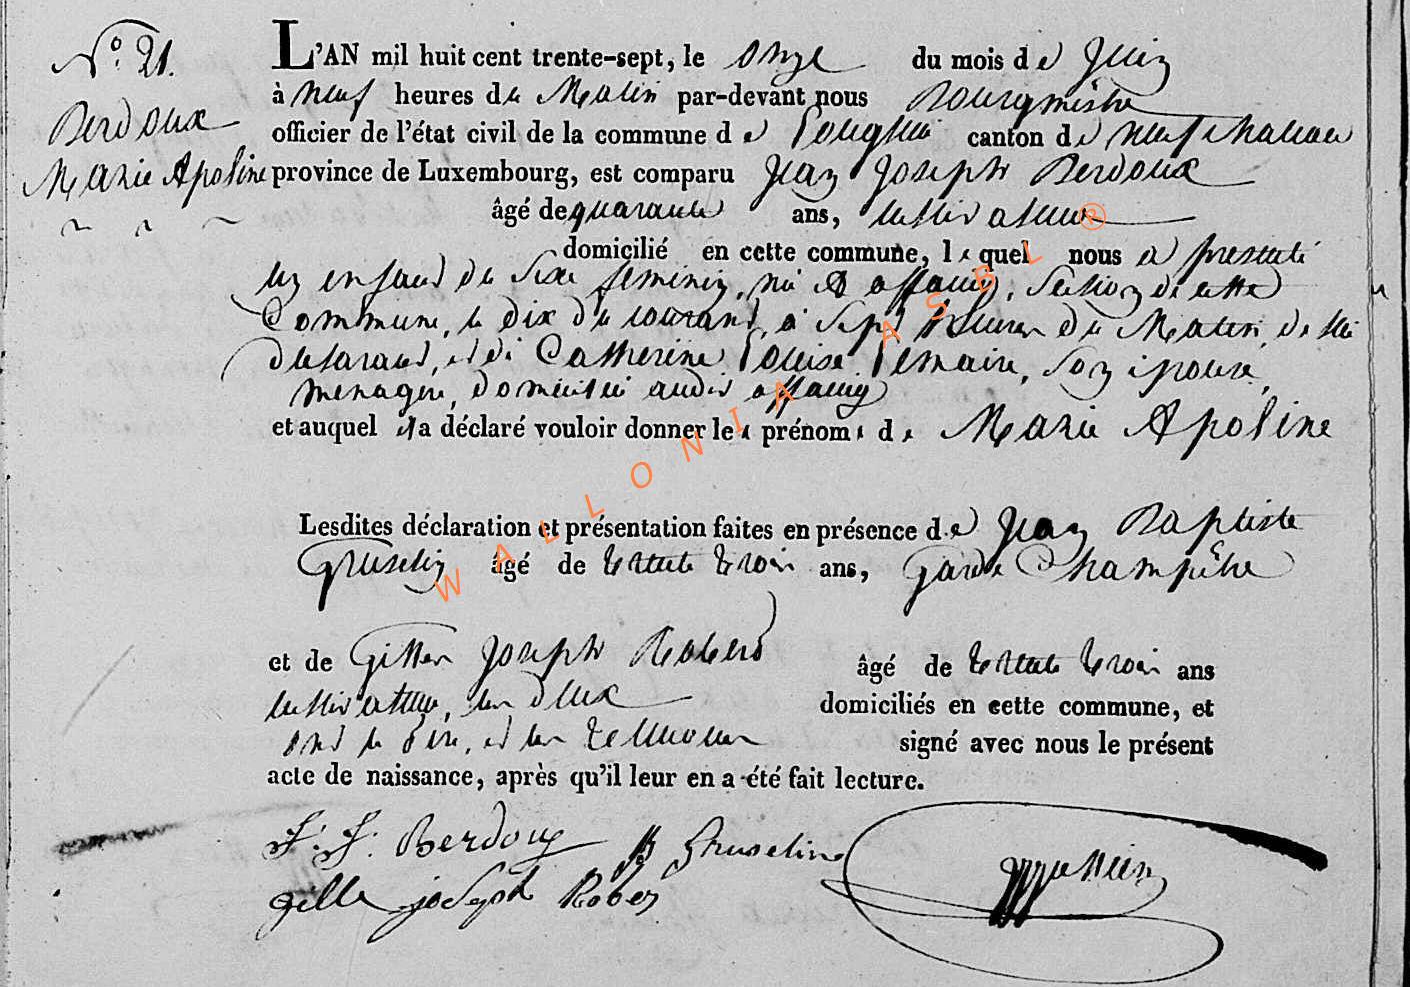 N.° 21.
Berdoux
Marie Apoline
L'AN mil huit cent trente-sept, le onze du mois de Juin
à neuf heures du Matin par-devant nous Bourgmestre
officier de l'état civil de la commune de Longlier canton de neufchateau
province de Luxembourg, est comparu Jean Joseph Berdoux
âgé de quarante ans, cultivateur
domicilié en cette commune, lequel nous a présenté
un enfant du sexe feminin, né à offaing, Section de cette
Commune, le dix du courant, à Sept heures du Matin, de lui
declarant, et de Catherine Louise Lemaire, son épouse,
menagere, domiciliée audit offaing
et auquel il a déclaré vouloir donner les prénoms de Marie Apoline
Lesdites déclaration et présentation faites en présence de Jean Baptiste
Gruselin âgé de trente trois ans, Garde Champêtre
et de Gilles Joseph Robert âgé de trente trois ans
cultivateur, les deux domiciliés en cette commune, et
ont le père, et les temoins signé avec nous le présent
acte de naissance, après qu'il leur en a été fait lecture.
J. J. Berdoux JB Gruseline
gille joseph Rober
WALLONIA ASBL ®